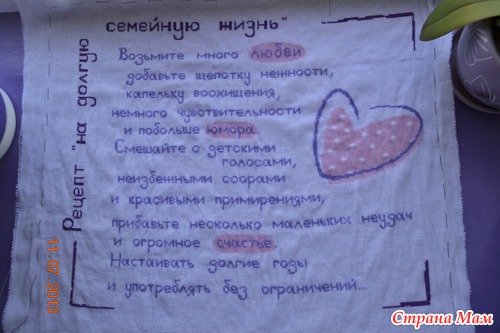 Рецепт "на долгую
семейную жизнь"
Возьмите много любви
добавьте щепотку ненности,
капельку воохищения,
немного чувствительности
и побольше юмора.
Смешайте с детскими
голосами,
неизбенными ссорами
и красивыми примирениями,
прибавьте несколько маленьких неудач
и огромное счастье.
Настаивать долгие годы
и употреблять без ограничений...
11.07.2013
Страна Мам